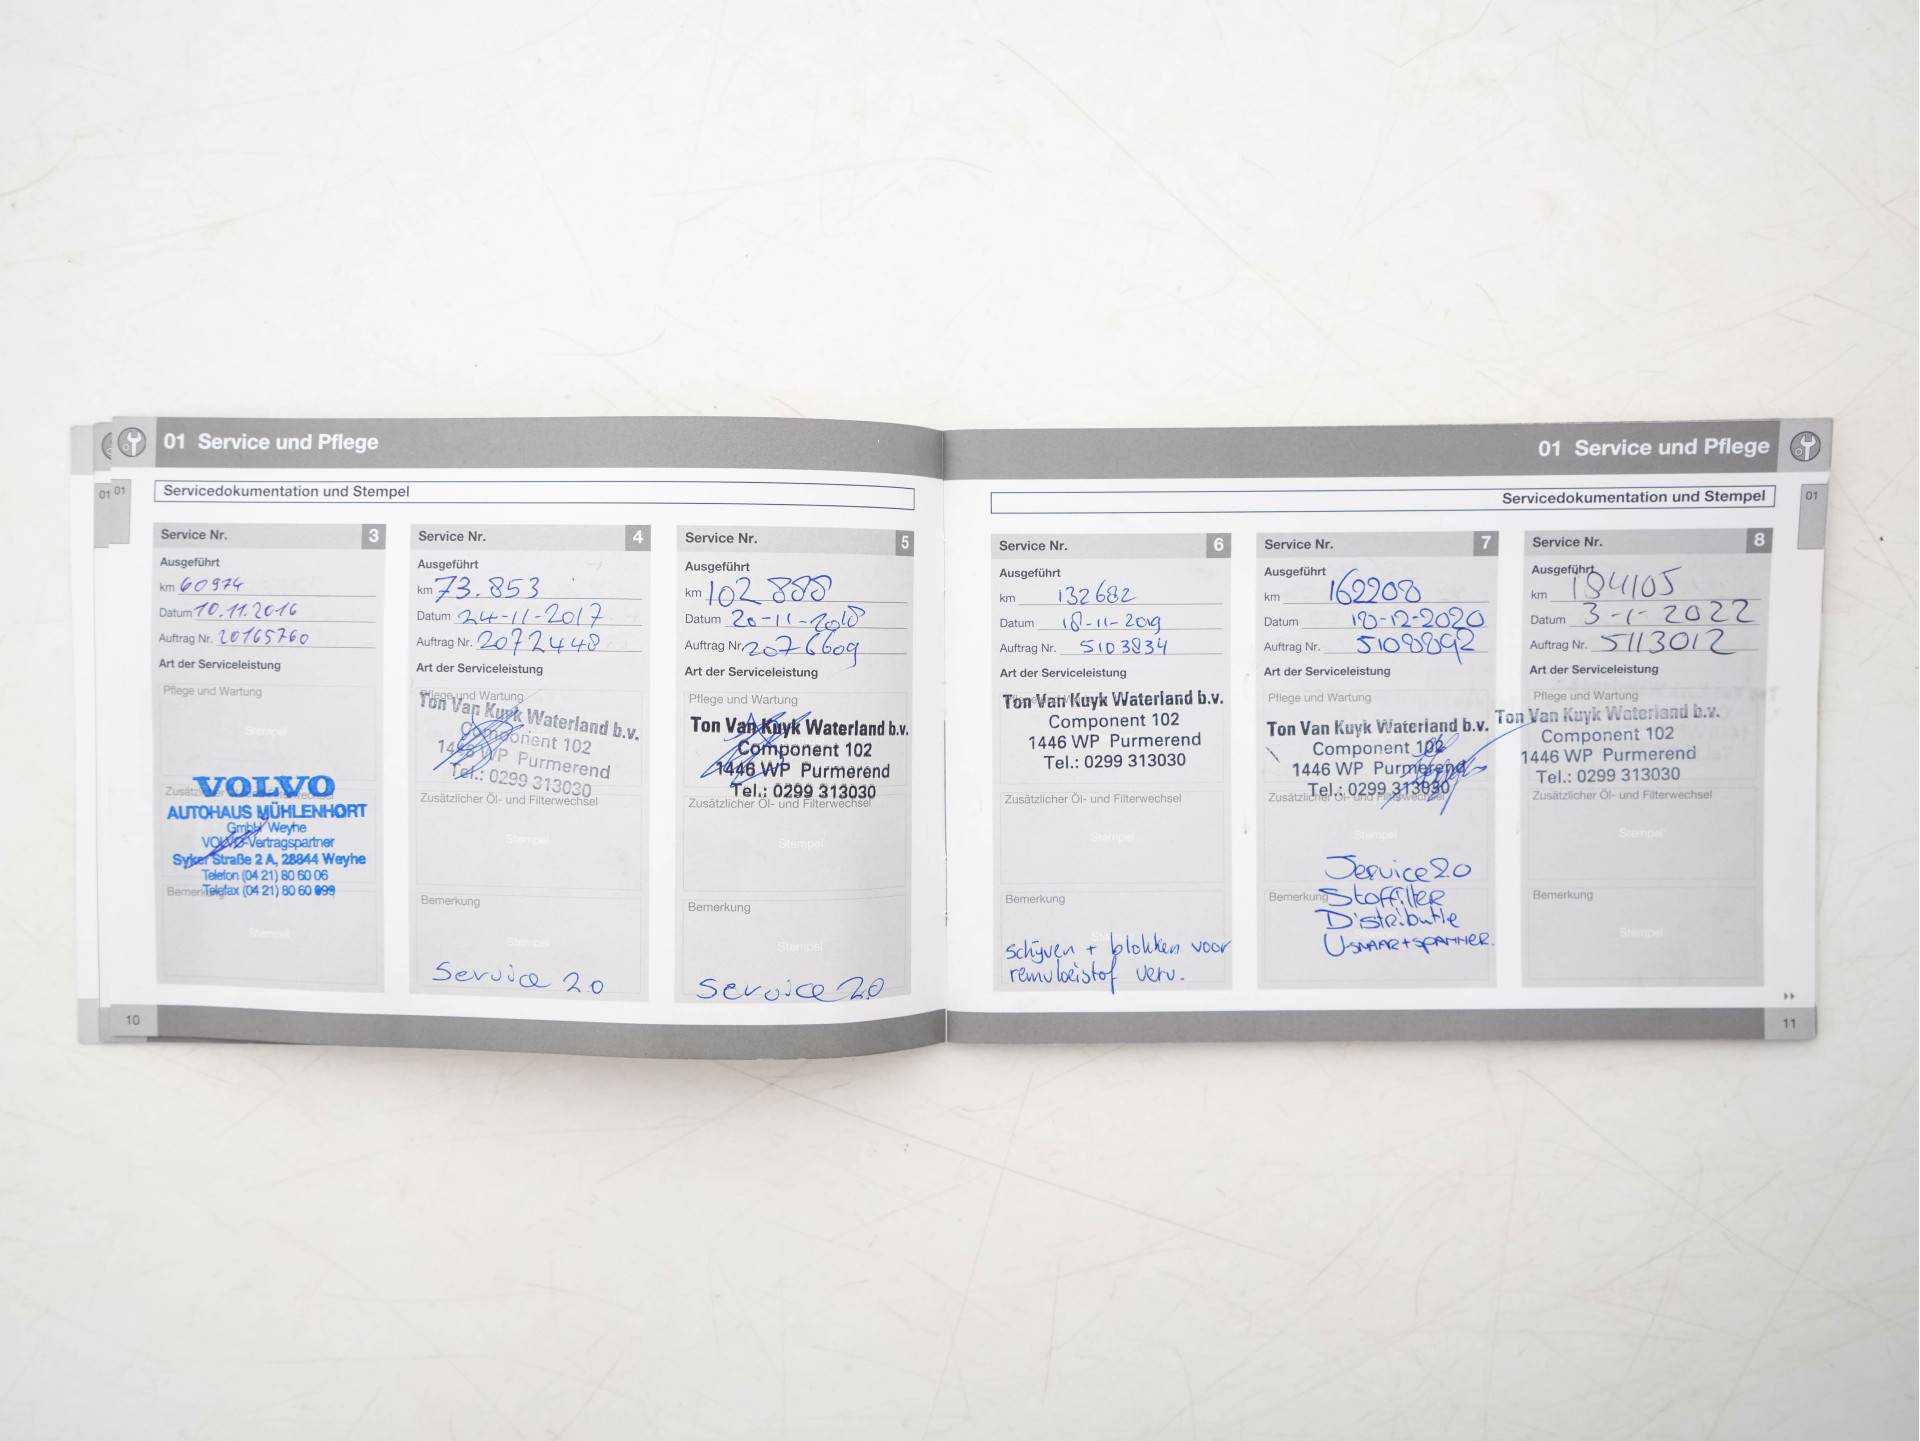 01 Service und Pflege
Servicedokumentation und Stempel
01 01
Service Nr. 3
Ausgeführt
km 60974
Datum 10.11.2016
Auftrag Nr. 20165760
Art der Serviceleistung
Pflege und Wartung
Stempel
VOLVO
AUTOHAUS MÜHLENHORT
GmbH Weyhe
VOLVO-Vertragspartner
Syker Straße 2 A, 28844 Weyhe
Telefon (04 21) 80 60 06
Bemerkung
Telefax (04 21) 80 60 699
Stempel
Service Nr. 4
Ausgeführt
km 73.853
Datum 24-11-2017
Auftrag Nr. 2072448
Art der Serviceleistung
Pflege und Wartung
Ton Van Kuyk Waterland b.v.
Component 102
1446 WP Purmerend
Tel.: 0299 313030
Zusätzlicher Öl- und Filterwechsel
Stempel
Bemerkung
Stempel
Service 2.0
Service Nr. 5
Ausgeführt
km 102 888
Datum 20-11-2018
Auftrag Nr. 2076609
Art der Serviceleistung
Pflege und Wartung
Ton Van Kuyk Waterland b.v.
Component 102
1446 WP Purmerend
Tel.: 0299 313030
Zusätzlicher Öl- und Filterwechsel
Stempel
Bemerkung
Stempel
Service 2.0
10
01 Service und Pflege
Servicedokumentation und Stempel
01
Service Nr. 6
Ausgeführt
km 132682
Datum 18-11-2019
Auftrag Nr. 5103834
Art der Serviceleistung
Ton Van Kuyk Waterland b.v.
Component 102
1446 WP Purmerend
Tel.: 0299 313030
Zusätzlicher Öl- und Filterwechsel
Stempel
Bemerkung
schijven + blokken voor
remvloeistof verv.
Service Nr. 7
Ausgeführt
km 162208
Datum 10-12-2020
Auftrag Nr. 5108892
Art der Serviceleistung
Pflege und Wartung
Ton Van Kuyk Waterland b.v.
Component 102
1446 WP Purmerend
Tel.: 0299 313030
Zusätzlicher Öl- und Filterwechsel
Stempel
Service 2.0
Bemerkung Stoffilter
Distributie
V-snaar + spanner.
Service Nr. 8
Ausgeführt
km 184105
Datum 3-1-2022
Auftrag Nr. 5113012
Art der Serviceleistung
Pflege und Wartung
Ton Van Kuyk Waterland b.v.
Component 102
1446 WP Purmerend
Tel.: 0299 313030
Zusätzlicher Öl- und Filterwechsel
Stempel
Bemerkung
Stempel
11